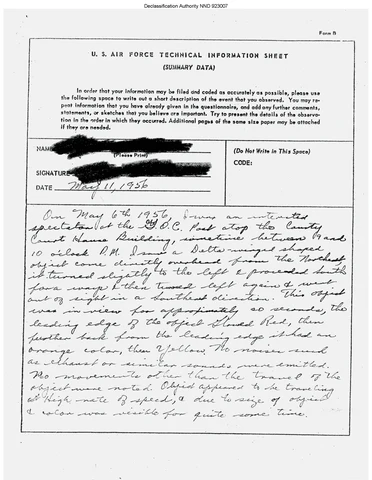 Declassification Authority NND 923007
Form B
U. S. AIR FORCE TECHNICAL INFORMATION SHEET
(SUMMARY DATA)
In order that your information may be filed and coded as accurately as possible, please use
the following space to write out a short description of the event that you observed. You may re-
peat information that you have already given in the questionnaire, and add any further comments,
statements, or sketches that you believe are important. Try to present the details of the observa-
tion in the order in which they occurred. Additional pages of the same size paper may be attached
if they are needed.
NAME
(Please Print)
(Do Not Write in This Space)
SIGNATURE
CODE:
DATE May 11, 1956
On May 6th 1956, I was an interested
spectator at the G.O.C. Post atop the County
Court House Building, sometime between 9 and
10 o'clock P.M. I saw a Delta winged shaped
object come directly overhead from the Northeast
it turned slightly to the left & proceeded South
for a ways & then turned left again & went
out of sight in a Southeast direction. This object
was in view for approximately 20 seconds, the
leading edge of the object Red, then
farther back from the leading edge it had an
orange color, then yellow. No noises such
as exhaust or similar sounds were emitted.
No movements other than the travel of the
object were noted. Object appeared to be traveling
at High rate of speed, & due to size of object
& color was visible for quite some time.